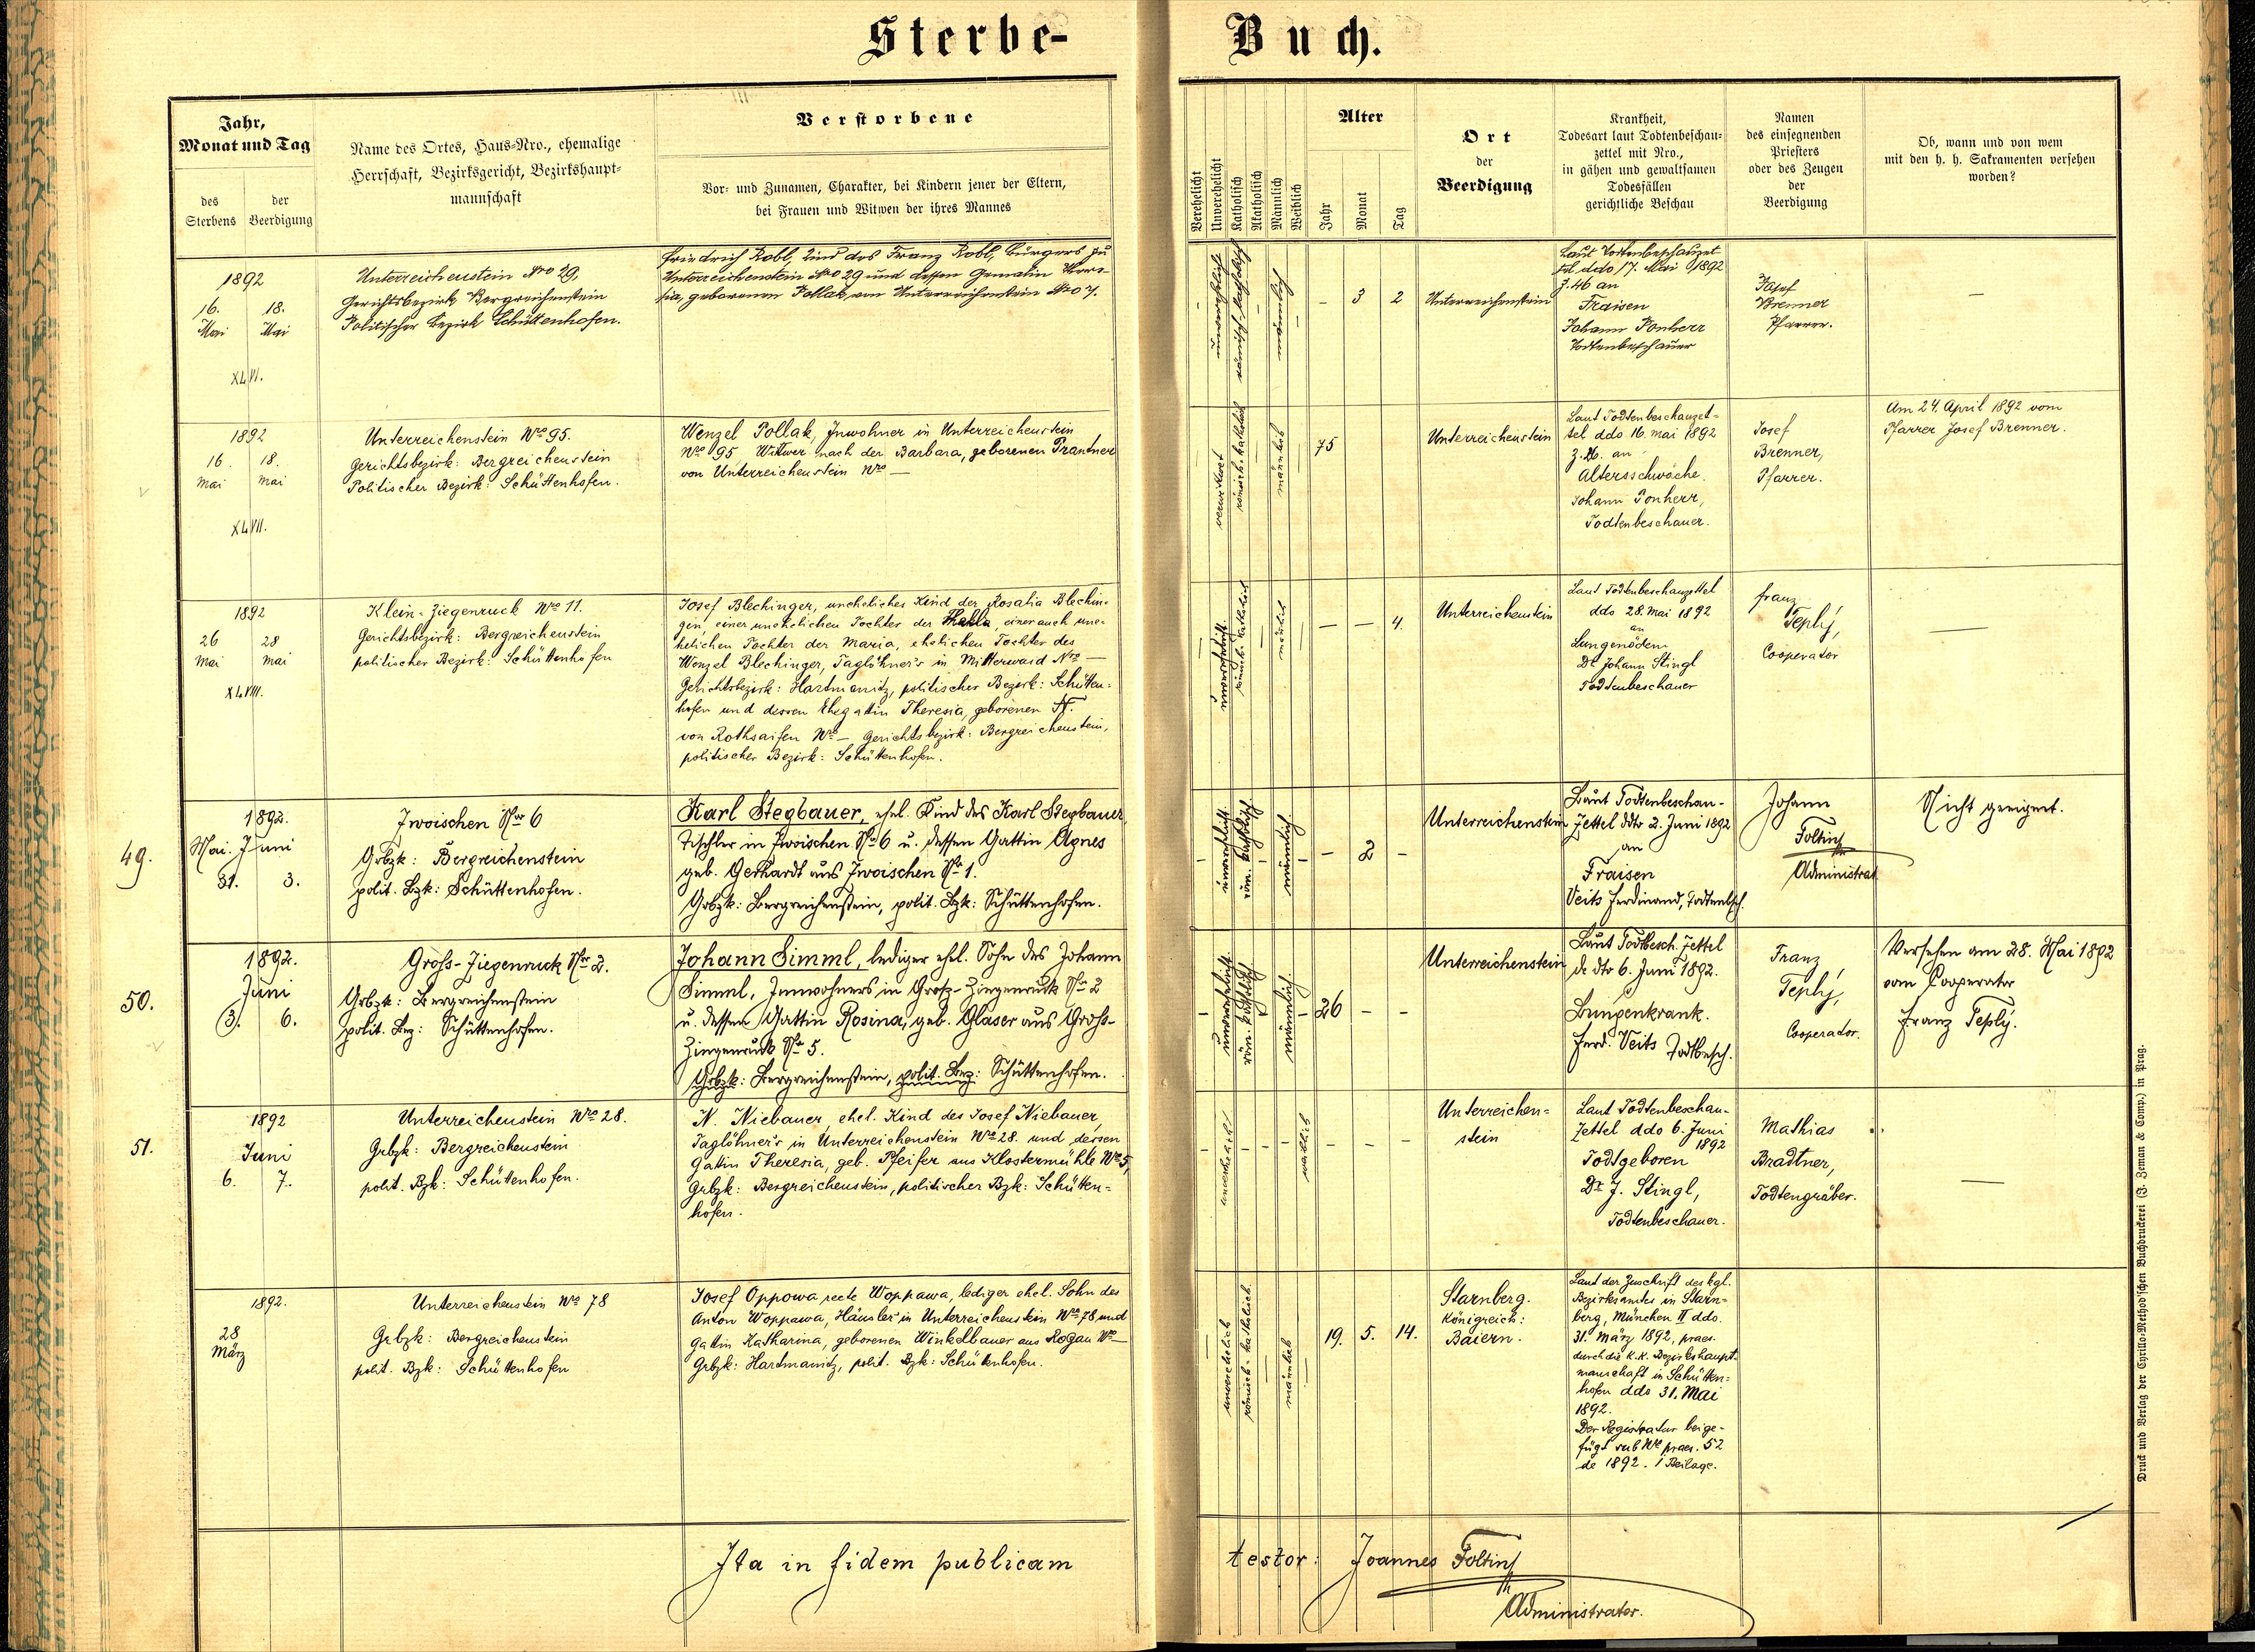 Sterbe-
Buch.
Jahr,
Monat und Tag
des
Sterbens
der
Beerdigung
Name des Ortes, Haus-Nro., ehemalige
Herrschaft, Bezirksgericht, Bezirkshaupt-
mannschaft
Verstorbene
Vor- und Zunamen, Charakter, bei Kindern jener der Eltern,
bei Frauen und Witwen der ihres Mannes
Verehelicht
Unverehelicht
Katholisch
Akatholisch
Männlich
Weiblich
Alter
Jahr
Monat
Tag
Ort
der
Beerdigung
Krankheit,
Todesart laut Todtenbeschau-
zettel mit Nro.,
in gähen und gewaltsamen
Todesfällen
gerichtliche Beschau
Namen
des einsegnenden
Priesters
oder des Zeugen
der
Beerdigung
Ob, wann und von wem
mit den h. h. Sakramenten versehen
worden?
1892
16. 18.
Mai Mai
XLVI.
Unterreichenstein Nro 29,
Gerichtsbezirk Bergreichenstein
Politischer Bezirk Schüttenhofen.
Friedrich Robl, Kind des Franz Robl, Bürgers zu
Unterreichenstein Nro 29 und dessen Gemalin There-
sia, geborenen Pollak, von Unterreichenstein Nro 7.
–
unverehelicht
römisch-katholisch
–
männlich
–
– 3 2
Unterreichenstein
Laut Todtenbeschauzet
tel ddo 17. Mai 1892
Z. 46 an
Fraisen
Johann Ponherr
Todtenbeschauer
Josef
Brenner
Pfarrer.
—
1892
16. 18.
Mai Mai
XLVII.
Unterreichenstein Nro 95.
Gerichtsbezirk: Bergreichenstein
Politischer Bezirk: Schüttenhofen.
Wenzel Pollak, Inwohner in Unterreichenstein
Nro 95 Witwer nach der Barbara, geborenen Prantner
von Unterreichenstein Nro —
verwitwet
römisch-katholisch
–
männlich
–
75
Unterreichenstein
Laut Todtenbeschauzet-
tel ddo 16. Mai 1892
Z. 46. an
Altersschwäche.
Johann Ponherr,
Todtenbeschauer.
Josef
Brenner,
Pfarrer.
Am 24. April 1892 vom
Pfarrer Josef Brenner.
1892
26 28
Mai Mai
XLVIII.
Klein-Ziegenruck Nro 11.
Gerichtsbezirk: Bergreichenstein
politischer Bezirk: Schüttenhofen
Josef Blechinger, uneheliches Kind der Rosalia Blechin-
ger, einer unehelichen Tochter der Thekla, einer auch une-
helichen Tochter der Maria, ehelichen Tochter des
Wenzel Blechinger, Taglöhner's in Mitterwaid Nro —
Gerichtsbezirk: Hartmanitz, politischer Bezirk: Schütten-
hofen und dessen Ehegattin Theresia, geborenen N.
von Rothsaifen Nro — Gerichtsbezirk: Bergreichenstein,
politischer Bezirk: Schüttenhofen.
–
unverehelicht
römisch-katholisch
–
männlich
–
— — 4.
Unterreichenstein
Laut Todtenbeschauzettel
ddo 28. Mai 1892
an
Lungenödem
Dr Johann Stingl
Todtenbeschauer
Franz
Teplý,
Cooperator
—
49.
1892.
Mai. Juni
31. 3.
Zwoischen Nro 6
Grbzk: Bergreichenstein
polit. Bzk: Schüttenhofen.
Karl Stegbauer, ehel. Kind des Karl Stegbauer,
Tischler in Zwoischen Nro 6 u. dessen Gattin Agnes
geb. Gerhardt aus Zwoischen Nro 1.
Grbzk: Bergreichenstein, polit. Bzk: Schüttenhofen.
–
unverehelicht.
röm. katholisch
–
männlich
–
– 2 –
Unterreichenstein
Laut Todtenbeschau-
zettel ddto 2. Juni 1892
an
Fraisen
Veits Ferdinand, Todtenbsch.
Johann
Foltin
Administrat
Nicht geeignet.
50.
1892.
Juni
3. 6.
Gross-Ziegenruck Nro 2.
Grbzk: Bergreichenstein
polit. Bez: Schüttenhofen.
Johann Simml, lediger ehel. Sohn des Johann
Simml, Innwohners in Gross-Ziegenruck Nro 2
u. dessen Gattin Rosina, geb. Gläser aus Gross-
Ziegenruck Nro 5.
Grbzk: Bergreichenstein, polit. Bez: Schüttenhofen.
–
unverehelicht.
röm. katholisch
–
männlich.
–
26 – –
Unterreichenstein
Laut Todtbesch. Zettel
de dto 6. Juni 1892.
Lungenkrank.
Ferd. Veits Todtbesch.
Franz
Teplý,
Cooperador.
Versehen am 28. Mai 1892
vom Cooperator
Franz Teplý.
51.
1892
Juni
6. 7.
Unterreichenstein Nro 28.
Grbzk: Bergreichenstein
polit. Bzk: Schüttenhofen.
N. Niebauer, ehel. Kind des Josef Niebauer,
Taglöhner's in Unterreichenstein Nro 28. und dessen
Gattin Theresia, geb. Pfeifer aus Klostermühle Nro 5,
Grbzk: Bergreichenstein, politischer Bzk: Schütten-
hofen.
–
unverehelicht
–
–
–
weiblich
– – –
Unterreichen-
stein
Laut Todtenbeschau-
zettel ddo 6. Juni
1892
Todtgeboren
Dr J. Stingl,
Todtenbeschauer.
Mathias
Bradtner,
Todtengräber.
—
1892.
28
März
Unterreichenstein Nro 78
Grbzk: Bergreichenstein
polit. Bzk: Schüttenhofen
Josef Oppowa recte Woppawa, lediger ehel. Sohn des
Anton Woppawa, Häusler in Unterreichenstein Nro 78 und
Gattin Katharina, geborenen Winkelbauer aus Rogau Nro —
Grbzk: Hartmanitz, polit. Bzk: Schüttenhofen.
–
unverehelich
römisch-katholisch.
–
männlich
–
19. 5. 14.
Starnberg.
Königreich:
Baiern.
Laut der Zuschrift des kgl.
Bezirksamtes in Starn-
berg, München II ddo.
31. März 1892, praes.
durch die K.K. Bezirkshaupt-
manschaft in Schütten-
hofen ddo 31. Mai
1892.
Der Registratur beige-
fügt sub Nro praes. 52
de 1892. 1 Beilage.
Ita in fidem publicam
testor: Joannes Foltin
Administrator.
Druck und Verlag der Cyrillo-Method'schen Buchdruckerei (J. Zeman & Comp.) in Prag.